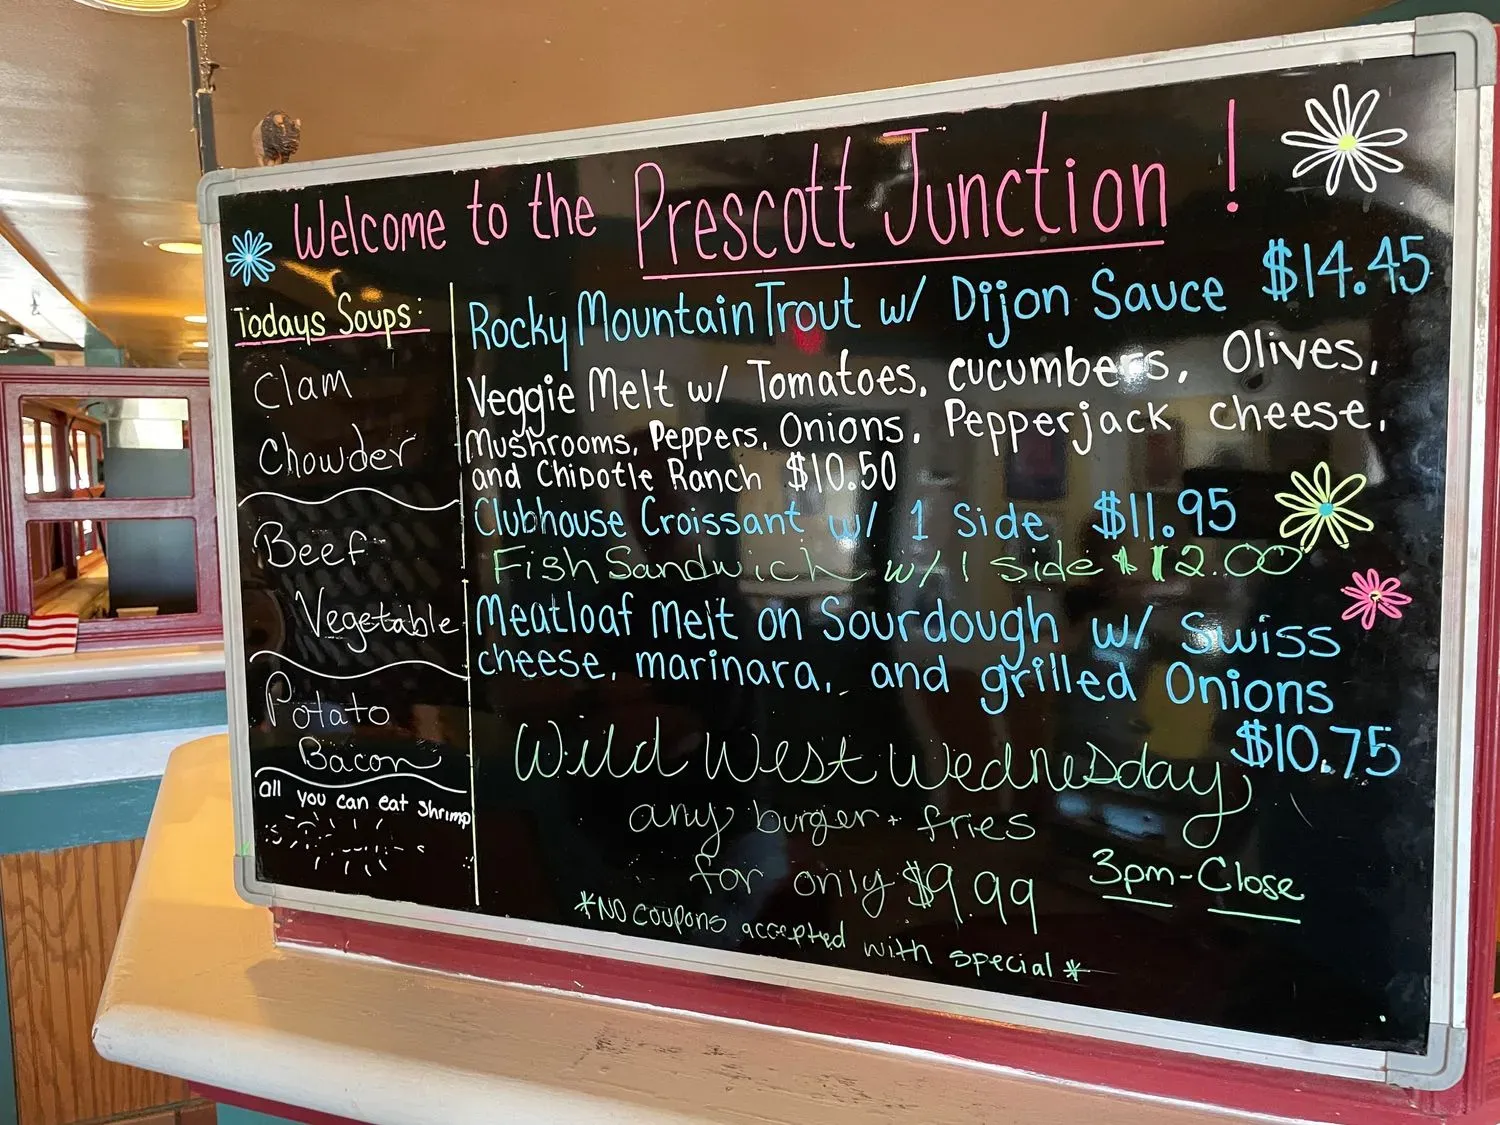 Welcome to the Prescott Junction !
Todays Soups:
Clam
Chowder
Beef
Vegetable
Potato
Bacon
all you can eat shrimp
Rocky Mountain Trout w/ Dijon Sauce $14.45
Veggie Melt w/ Tomatoes, cucumbers, Olives,
Mushrooms, Peppers, Onions, Pepperjack cheese,
and Chipotle Ranch $10.50
Clubhouse Croissant w/ 1 Side $11.95
Fish Sandwich w/ 1 side $12.00
Meatloaf Melt on Sourdough w/ Swiss
cheese, marinara, and grilled Onions
$10.75
Wild West Wednesday
any burger + fries
for only $9.99
3pm-Close
*NO coupons accepted with special*